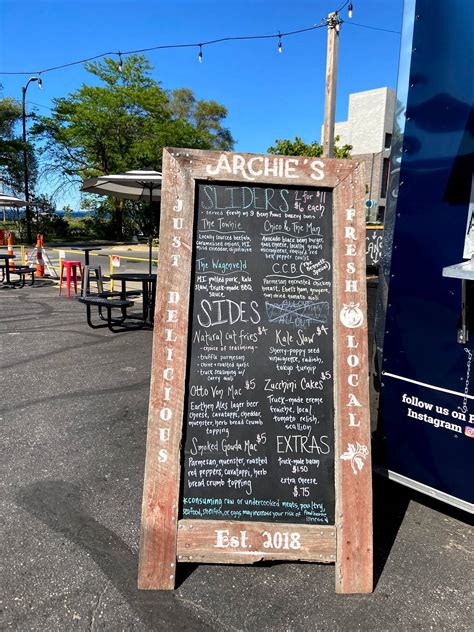 ARCHIE'S
JUST DELICIOUS
FRESH LOCAL
SLIDERS
$6 each
served fresh on a
bakery buns
The Townie
Locally sourced beef,
caramelized onions, MI
cheddar,
Chico & the Man
Avocado black bean burger,
The Wagenveld
MI pulled pork, kale
slaw, truck-made BBQ
sauce
CCB
Parmesan encrusted chicken
breast,
sun dried tomato
SIDES
Natural cut fries $4
- choice of seasoning -
- truffle parmesan
- onion + roasted garlic
- truck seasoning w/
curry aioli
Kale Slaw $4
Sherry-poppy seed
vinaigrette, radish,
turnip
Otto Von Mac $5
Earthen Ales lager beer
cheese, cavatappi, cheddar,
muenster, herb bread crumb
topping
Zucchini Cakes $5
Truck-made creme
fraiche, local
tomato relish,
scallion
Smoked Gouda Mac $5
Parmesan, muenster, roasted
red peppers, cavatappi, herb
bread crumb topping
EXTRAS
Truck-made bacon
$1.50
extra cheese
$.75
*consuming raw or undercooked meats, poultry,
seafood, shellfish, or eggs may increase your risk of foodborne
illness
Est. 2018
follow us on
Instagram